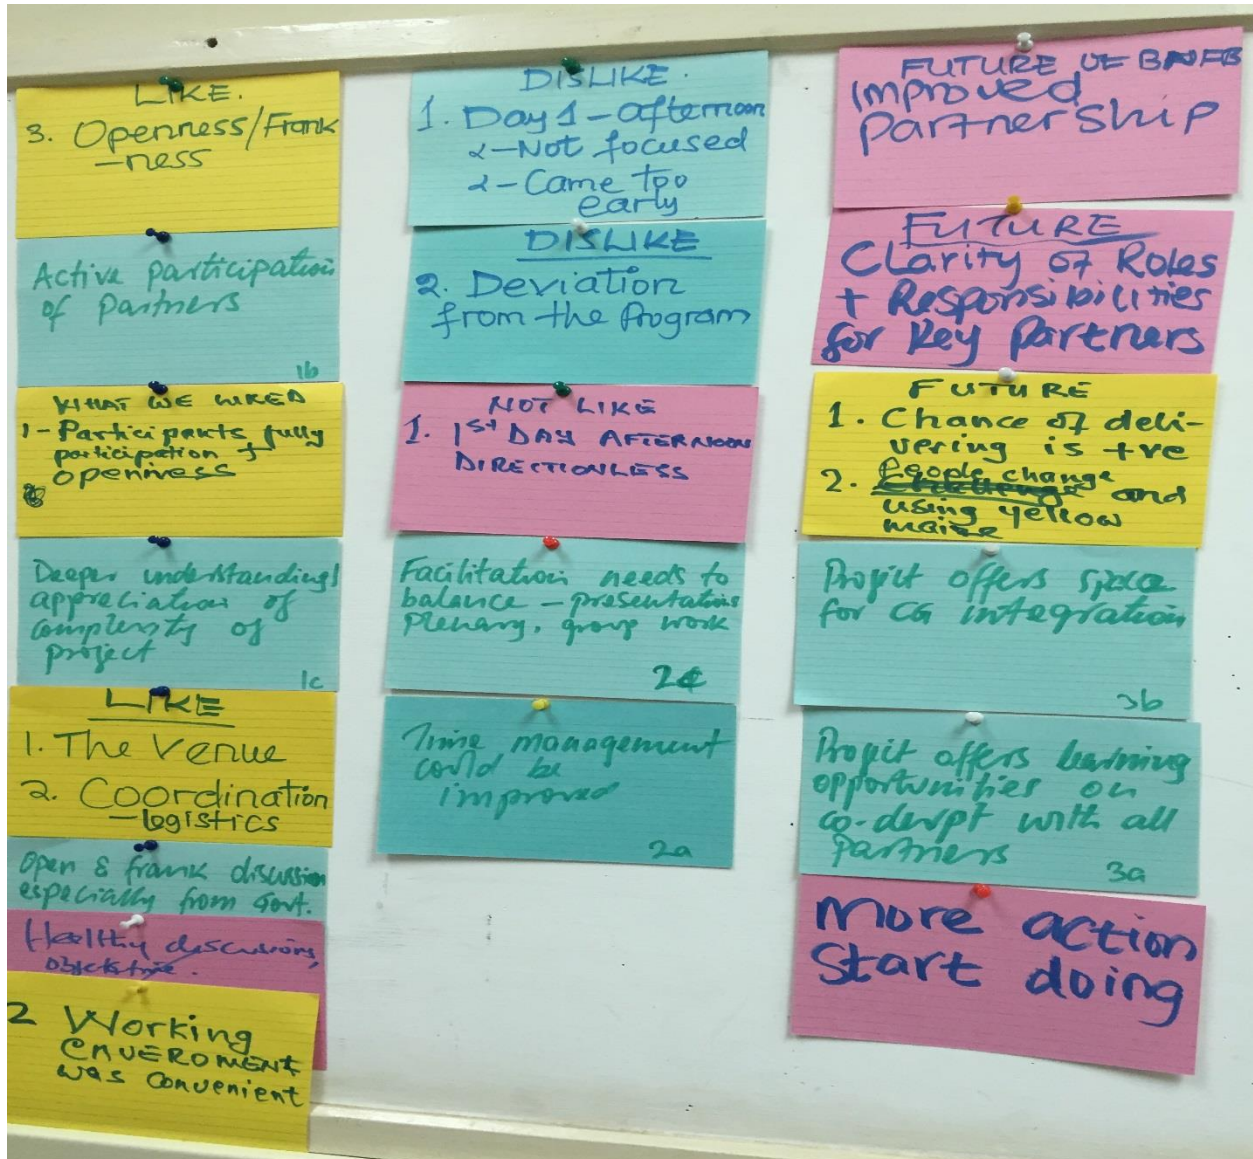 LIKE.
3. Openness/Frank
-ness
Active participation
of Partners
1b
WHAT WE LIKED
1- Participants fully
participation +
openness
Deeper understanding/
appreciation of
complexity of
project
1c
LIKE
1. The Venue
2. Coordination
-logistics
Open & frank discussion
especially from Govt.
Healthy discussions,
2 Working
ENVEROMENT
was convenient
DISLIKE.
1. Day 1 - afternoon
- Not focused
- Came too
early
DISLIKE
2. Deviation
from the Program
NOT LIKE
1. 1st DAY AFTERNOON
DIRECTIONLESS
Facilitation needs to
balance - presentations
plenary, group work
2c
Time management
could be
improved
2a
FUTURE OF BNFB
Improved
partnership
FUTURE
Clarity of Roles
+ Responsibilities
for key partners
FUTURE
1. Chance of deli-
vering is +ve
2. People change
and
using yellow
maize
Project offers space
for CG integration
3b
Project offers learning
opportunities on
co-devpt with all
Partners
3a
More action
Start doing